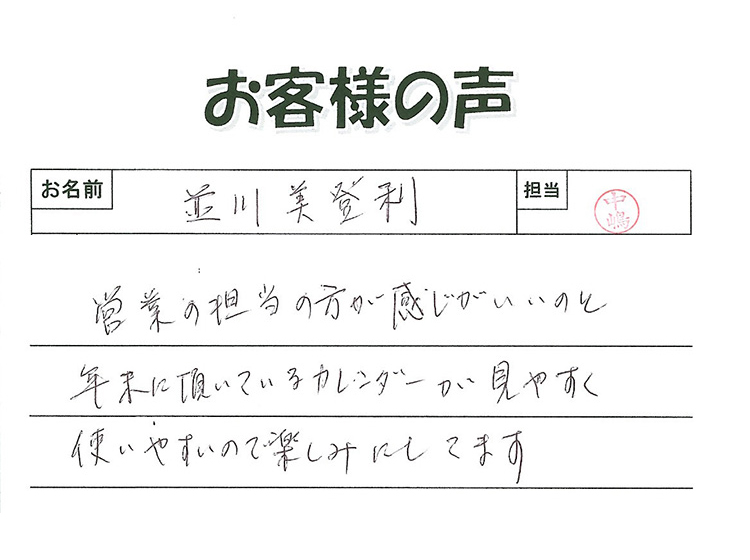 お客様の声
お名前 並川美登利 担当 中嶋
営業の担当の方が感じがいいのと
年末に頂いているカレンダーが見やすく
使いやすいので楽しみにしてます